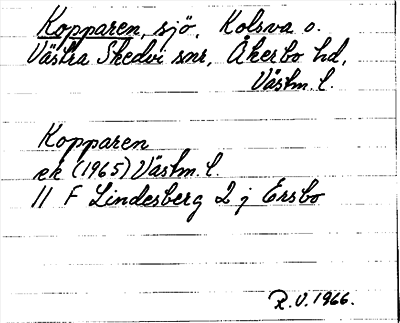 Kopparen, sjö, Kolsva o.
Västra Skedvi snr, Åkerbo hd,
Västm. l.
Kopparen
ek (1965) Västm. l.
11 F Lindesberg 2 j Ersbo
R.V. 1966.